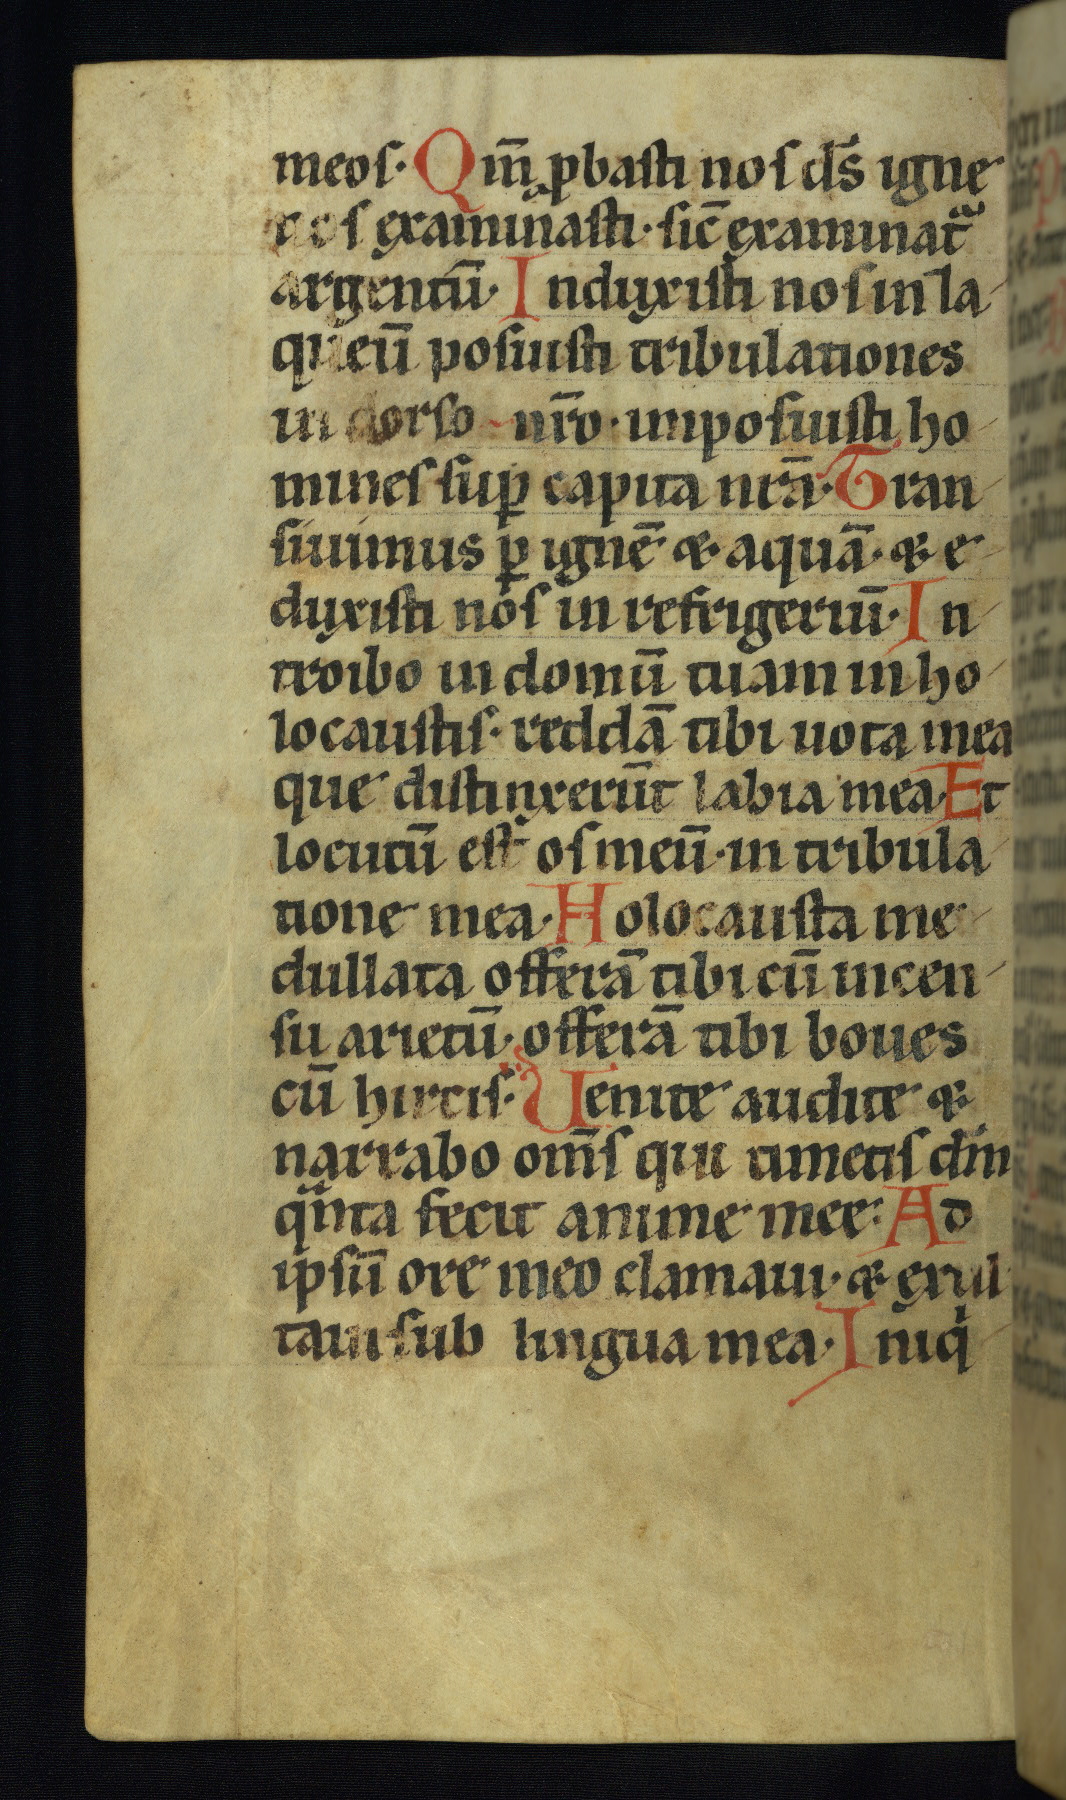 meos· Qm̄ ꝓbasti nos ds̄ igne
nos examinasti· sic̄ examinat᷑
argentū· Induxisti nos in la-
queū posuisti tribulationes
in dorso nr̄o· imposuisti ho-
mines suꝑ capita nrā· Tran-
siuimus ꝑ ignē & aquā· & e-
duxisti nos in refrigeriū· In-
troibo in domū tuam in ho-
locaustis· reddā tibi uota mea
que distinxerūt labia mea· Et
locutū est os meū· in tribula-
tione mea· Holocausta me-
dullata offerā tibi cū incen-
su arietū· offerā tibi boues
cū hircis· Uenite audite &
narrabo om̄s qui timetis dm̄
qͣnta fecit anime mee· Ad
ipsū ore meo clamaui· & exul-
taui sub lingua mea· Iniqͥ-